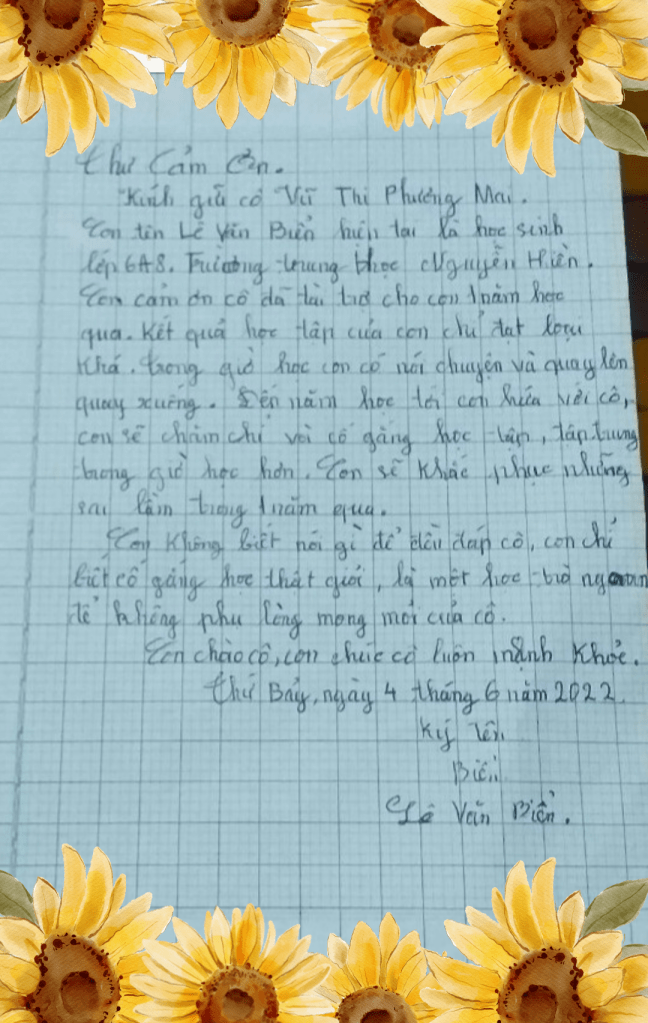 Thư Cảm Ơn.
Kính gửi cô Vũ Thị Phương Mai.
Con tên Lê Văn Biển hiện tại là học sinh
lớp 6A8. Trường trung học Nguyễn Hiền.
Con cảm ơn cô đã tài trợ cho con 1 năm học
qua. Kết quả học tập của con chỉ đạt loại
Khá. trong giờ học con có nói chuyện và quay lên
quay xuống. Đến năm học tới con hứa với cô,
con sẽ chăm chỉ với cố gắng học tập, tập trung
trong giờ học hơn. Con sẽ khắc phục những
sai lầm trong 1 năm qua.
Con không biết nói gì để đền đáp cô, con chỉ
biết cố gắng học thật giỏi, là một học trò ngoan
để không phụ lòng mong mỏi của cô.
Con chào cô, con chúc cô luôn mạnh khỏe.
Thứ Bảy, ngày 4 tháng 6 năm 2022.
Ký tên
Biển
Lê Văn Biển.